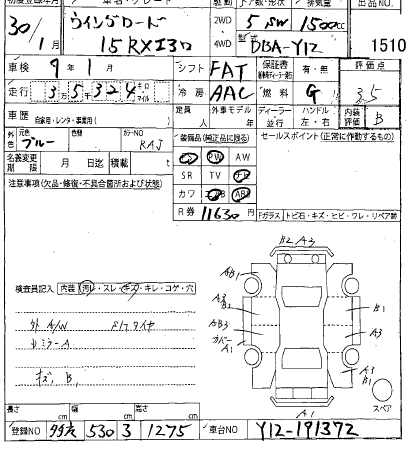 初度登録年月 車名・グレード 駆動 ドア数・形状 排気量 出品NO.
30/1月 ウイングロード 2WD 5 SW 1500cc
15RXエアロ 4WD DBA-Y12 1510
車検 9年1月 シフト FAT 保証書 有・無 評価点
走行 3万5千324 キロ マイル 冷房 AAC 燃料 G 3.5
車歴 自家用・レンタ・事業用( ) 定員 人 外車モデル 年 ディーラー 並行 ハンドル 左・右 内装評価 B
外色 元色 ブルー カラーNO RAJ 装備品(純正品に限る) セールスポイント(正常に作動するもの)
名義変更期限 月 日迄 積載 t PS PW AW
注意事項(欠品・修復・不具合箇所および状態) SR TV ナビ
カワ エアB ABS
R券 11630円 Fガラス トビ石・キズ・ヒビ・ワレ・リペア跡
B2 A3
AB1
検査員記入 内装 汚レ・スレ・キズ・キレ・コゲ・穴
外A/W ドハタイヤ
AB3
カバー A1
B1
A3
ミラーA
キズ、B1
A3 B1
スペア
A1
長さ cm 幅 cm 高さ cm
登録NO 530 3 1275 車台NO Y12-191372